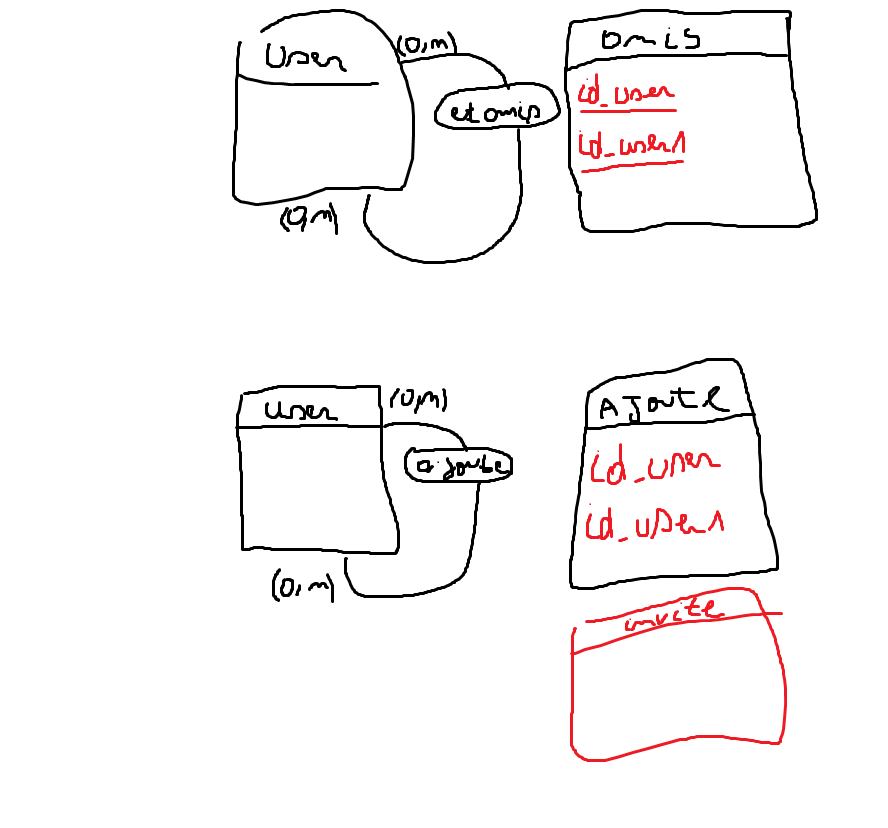 User
(0,n)
et amis
(0,n)
amis
id_user
id_user1
user
(0,n)
ajoute
(0,n)
AJoute
id_user
id_user1
invite